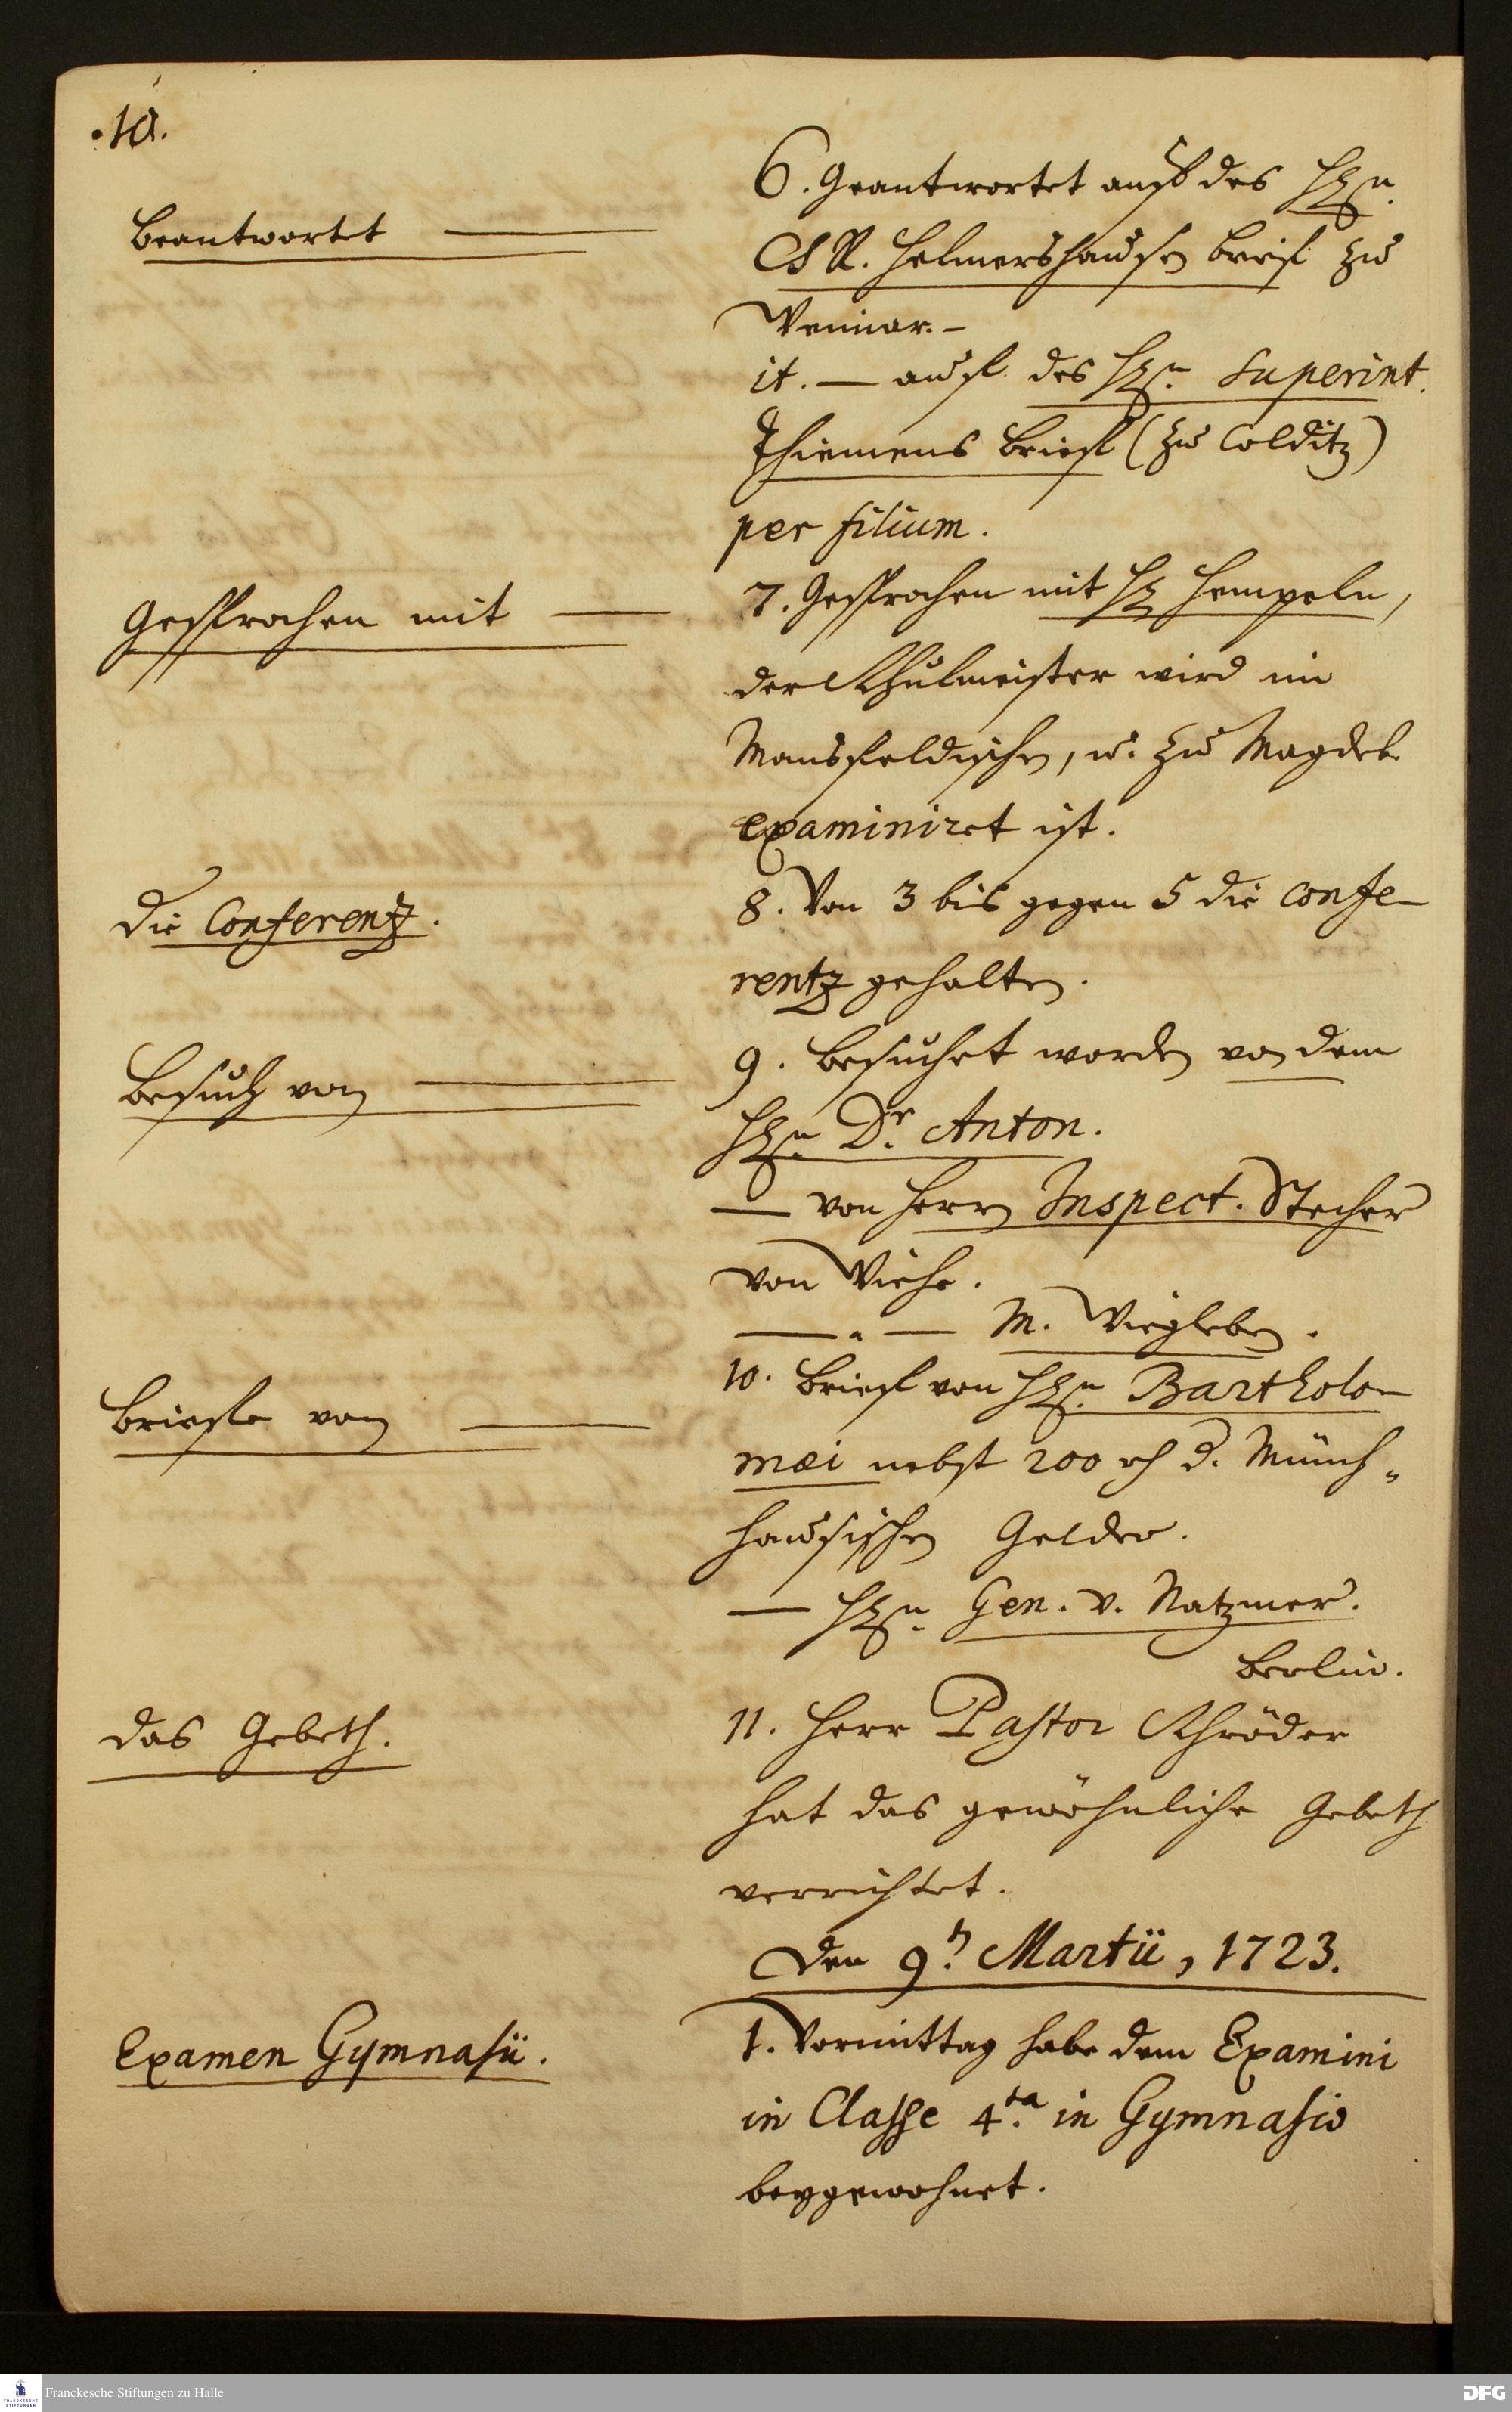 10.
Beantwortet
6. Geantwortet auff des Hrn.
CR. Helmershausen brief zu
Weimar. -
it. — auff des Hrn. Superint.
Thiemens brieff (zu Colditz)
per filium.
Gesprochen mit
7. Gesprochen mit Hr Hempeln,
der Schulmeister wird im
Mansfeldischen, u. zu Magdeb.
examiniret ist.
Die Conferentz.
8. Von 3 bis gegen 5 die Confe-
rentz gehalten.
Besuch von
9. Besuchet worden von dem
Hrn. Dr. Anton.
— von Herrn Inspect. Stecher
von Wiehe.
— " — M. Wiegleben.
Brieffe von
10. Brieff von Hrn. Bartholo-
mæi nebst 200 rh d. Münch-
hausischen Gelder.
— Hrn. Gen. v. Natzmer.
Berlin.
Das Gebeth.
11. Herr Pastor Schröder
hat das gewöhnliche Gebeth
verrichtet.
Den 9n. Martii, 1723.
Examen Gymnasii.
1. Vormittag habe dem Examini
in Classe 4.ta in Gymnasio
beygewohnet.
Franckesche Stiftungen zu Halle
DFG